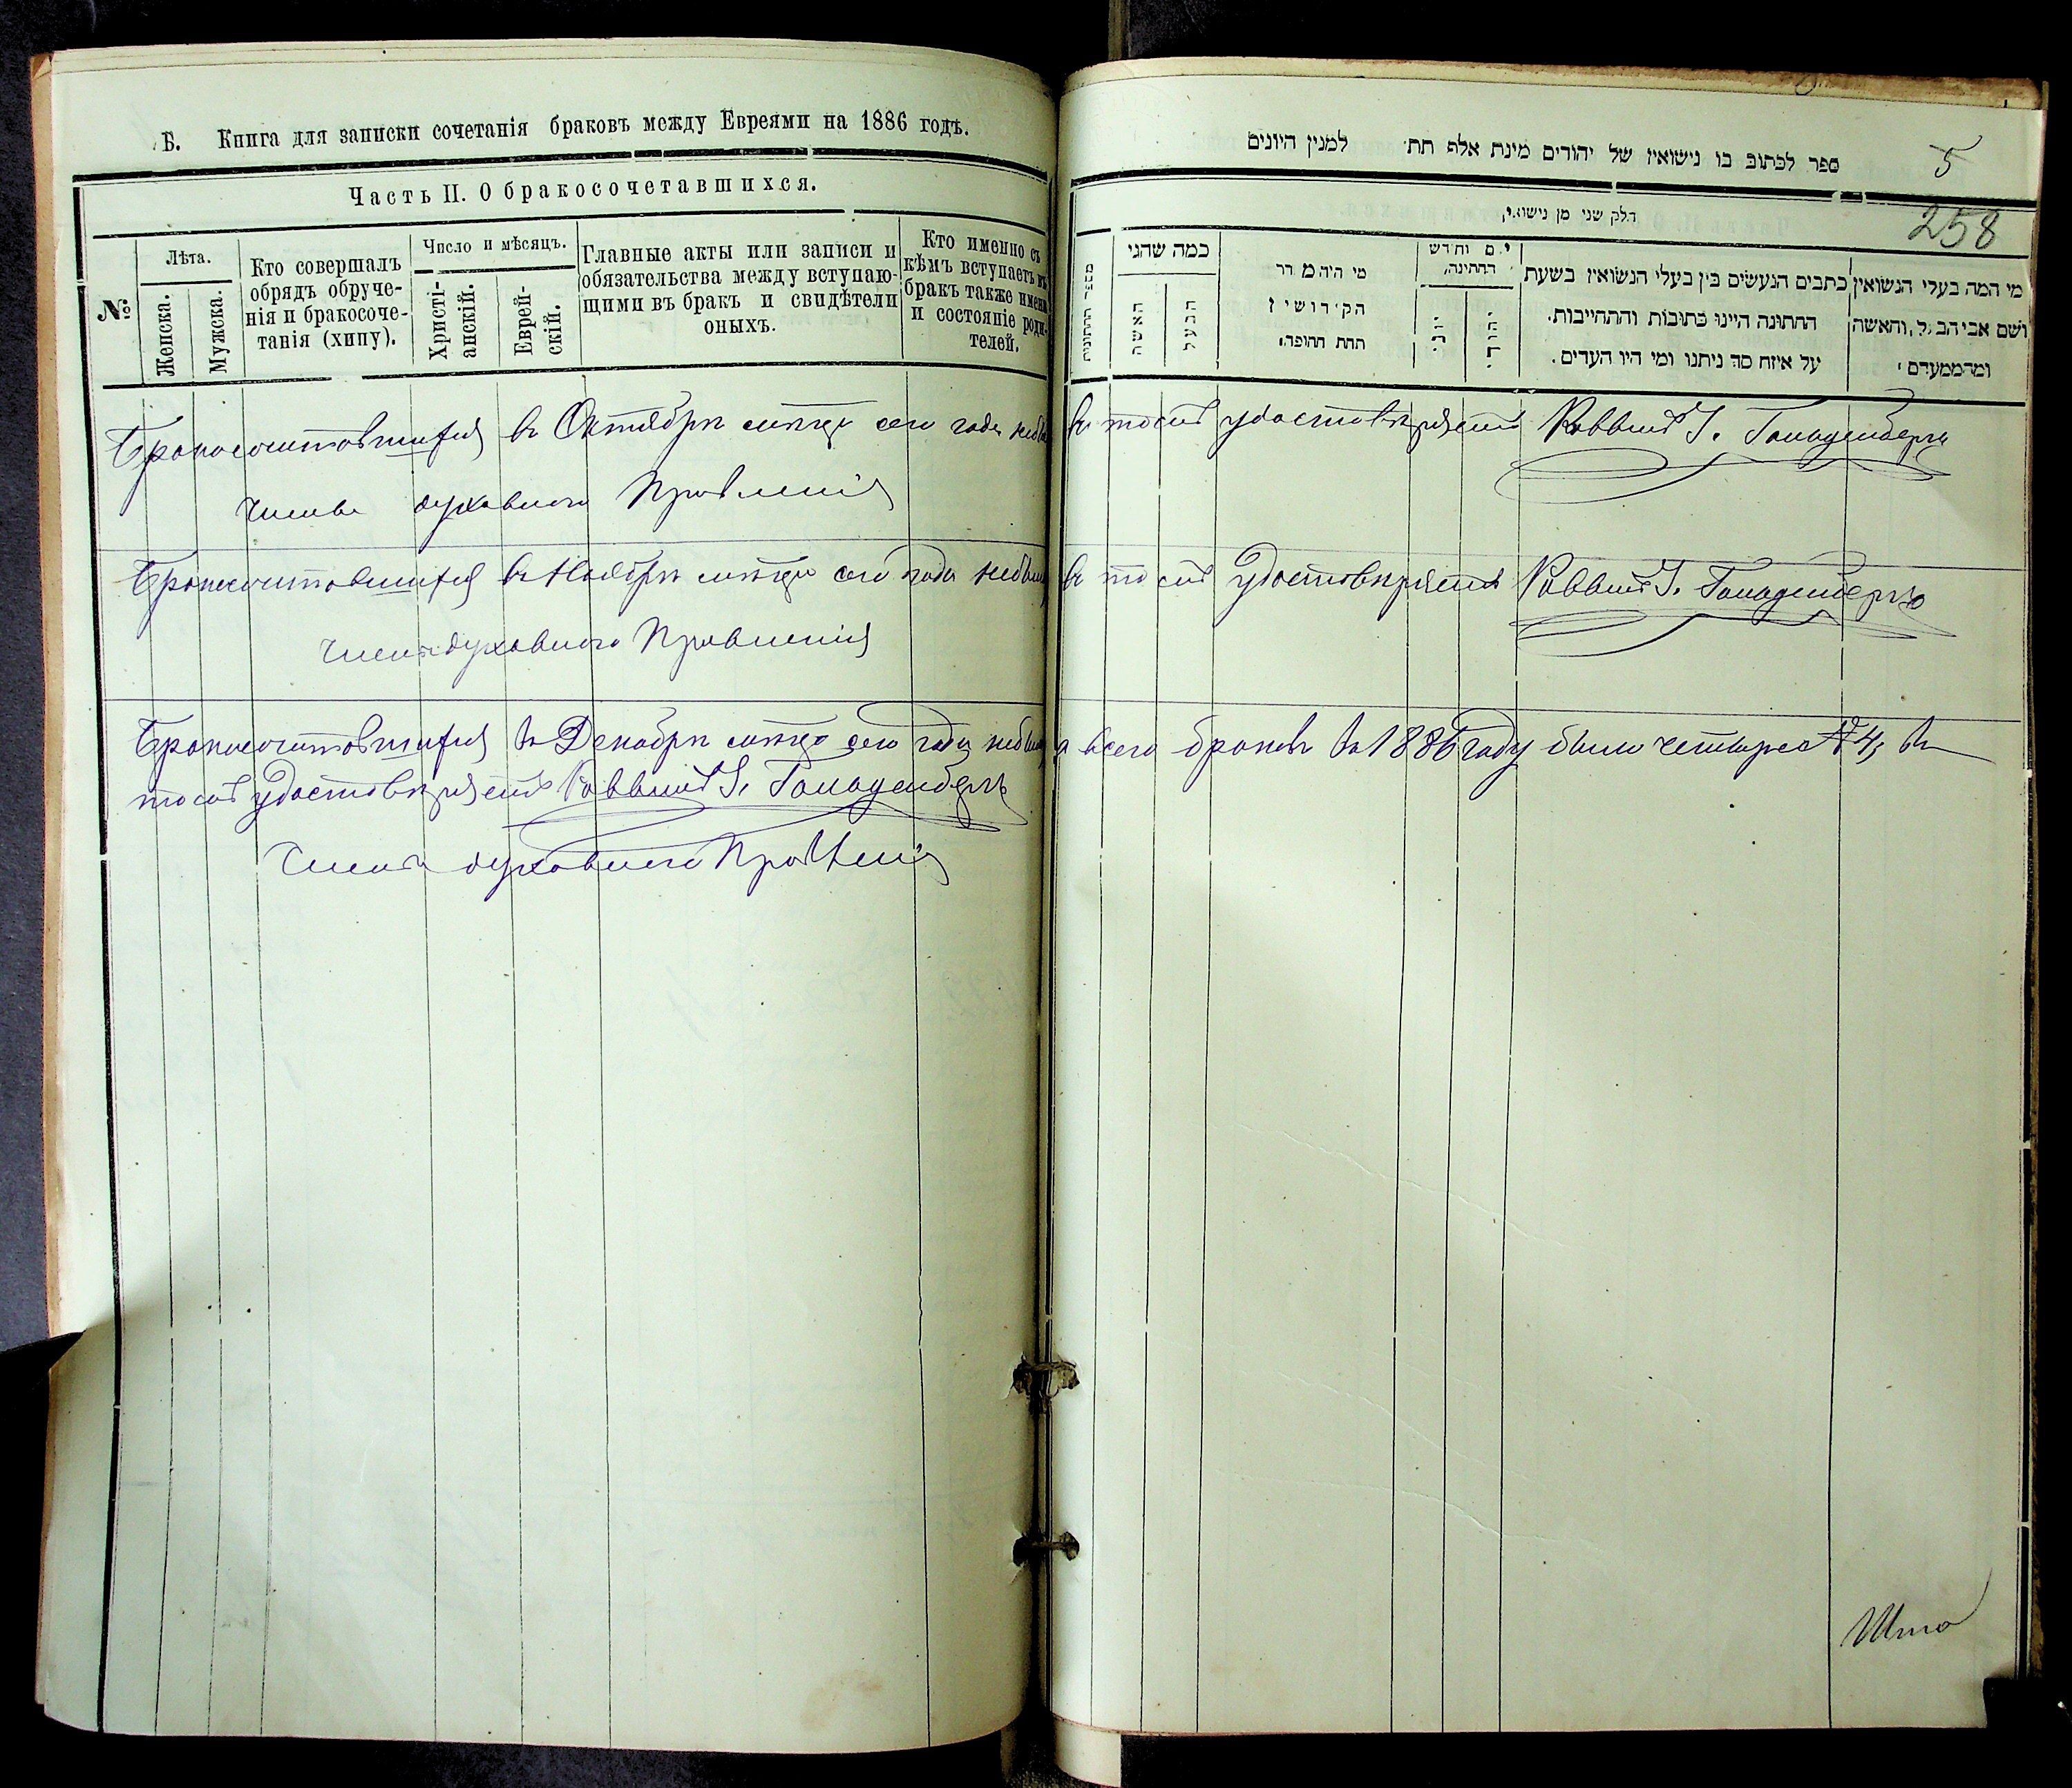 Б. Книга для записки сочетанія браковъ между Евреями на 1886 годъ.
Часть II. О бракосочетавшихся.
№
Лѣта.
Женска.
Мужска.
Кто совершалъ
обрядъ обруче-
нія и бракосоче-
танія (хипу).
Число и мѣсяцъ.
Христі-
анскій.
Еврей-
скій.
Главные акты или записи и
обязательства между вступаю-
щими въ бракъ и свидѣтели
оныхъ.
Кто именно съ
кѣмъ вступаетъ въ
бракъ также имена
и состояніе роди-
телей.
ספר לכתוב בו נישואין של יהודים מינת אלף תת למנין היונים
5
חלק שני מן נישואין
258
כמה שהני
האשה
הבעל
מי היה מסדר
הקידושין
תחת החופה
יום וחדש
החתונה
יוני
יהודי
כתבים הנעשים בין בעלי הנשואין בשעת
החתונה היינו כתובות והתחייבות.
על איזה סך ניתנו ומי היו העדים.
מי המה בעלי הנשואין
ושם אבי הבעל, והאשה
ומהמעמדם
Бракосочетавшихся въ Октябрѣ мѣсяцѣ сего года небыло въ томъ удостовѣряетъ Раввинъ
Члены духовного Правленія
Бракосочетавшихся въ Ноябрѣ мѣсяцѣ сего года небыло въ томъ удостовѣряетъ Раввинъ
Члены духовного Правленія
Бракосочетавшихся въ Декабрѣ мѣсяцѣ сего года небыло а всего браковъ въ 1886 году было четыре 4, въ
томъ удостовѣряетъ Раввинъ
Члены духовного Правленія